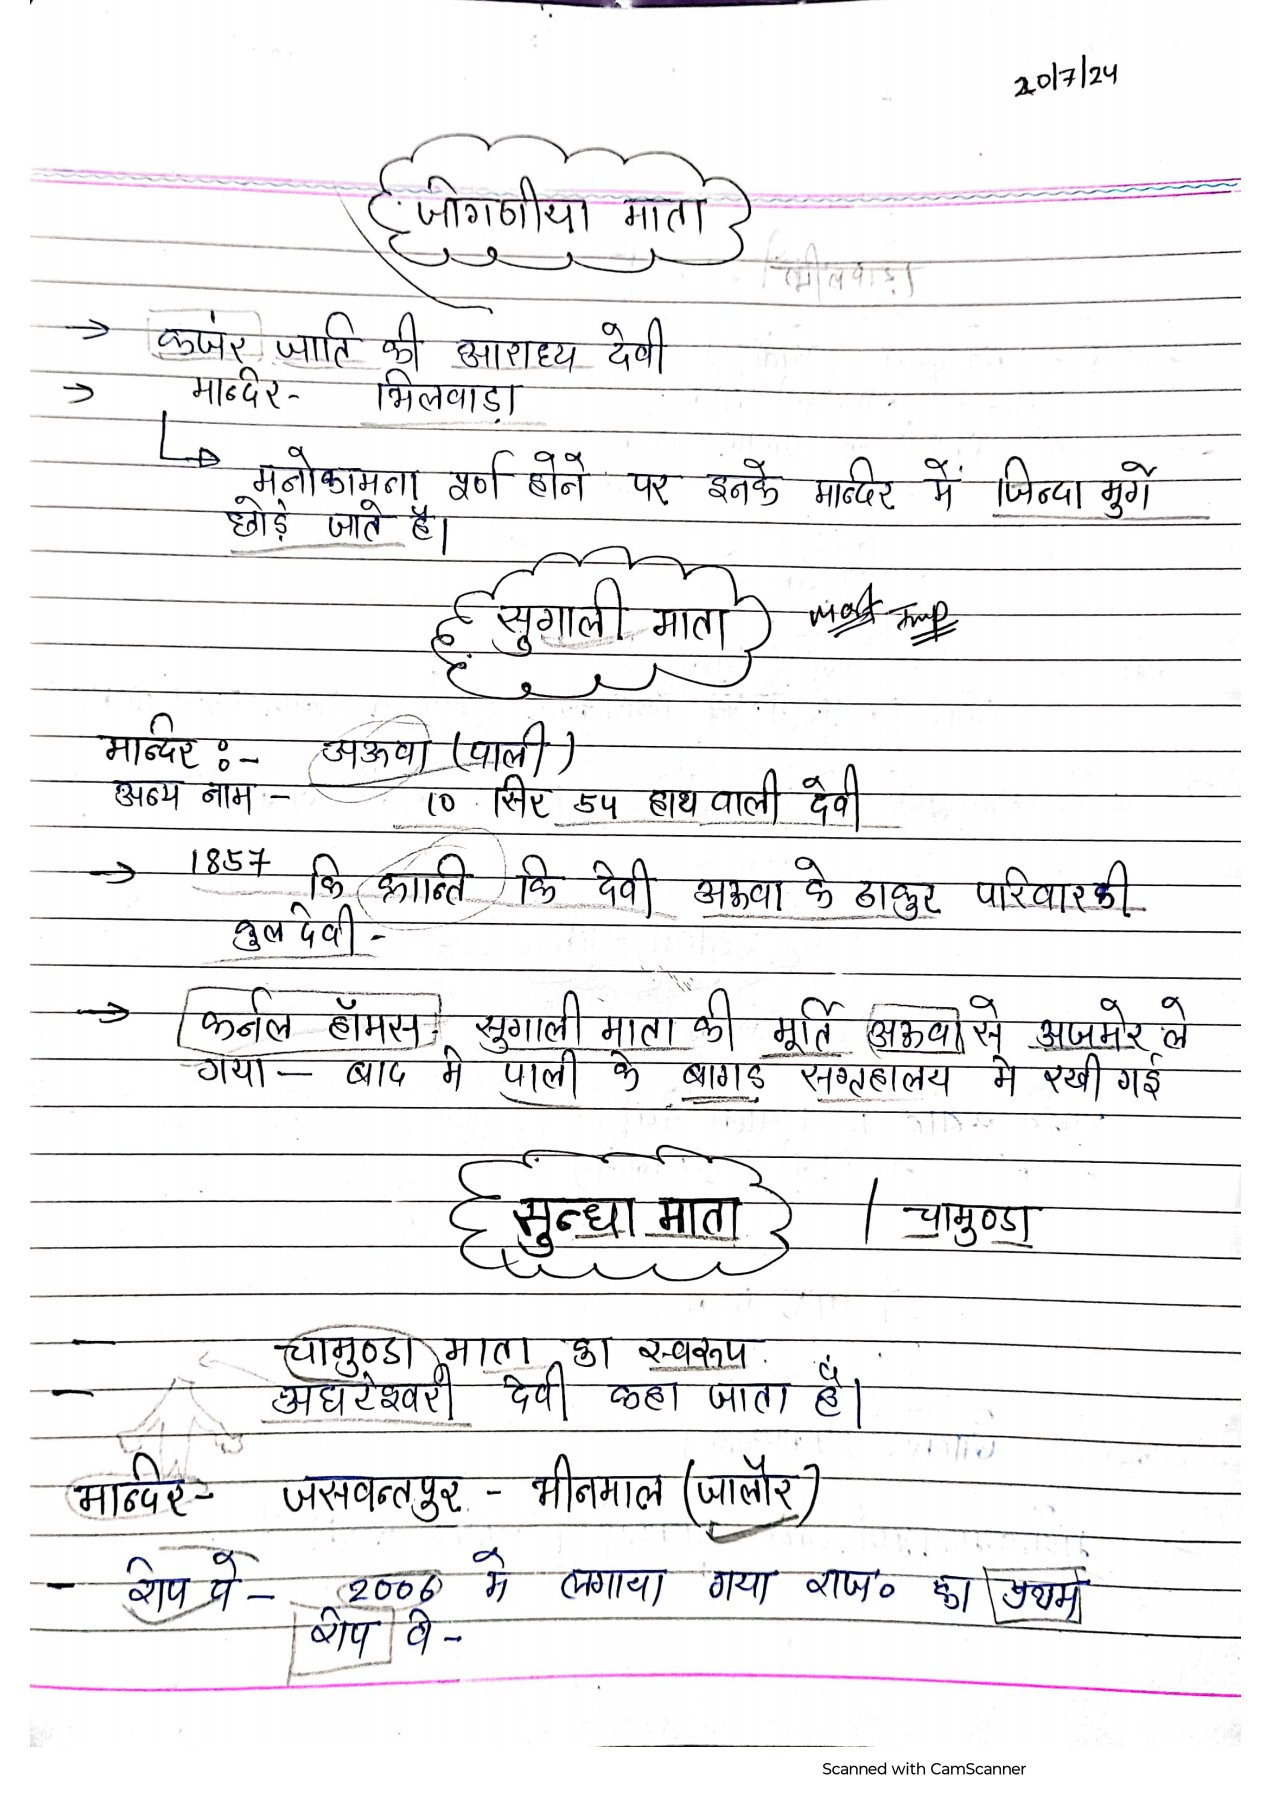 20/7/24
जोगणीया माता
भीलवाड़ा
→ कजंर जाति की आराध्य देवी
→ मान्दिर- भिलवाड़ा
मनोकामना पूर्ण होने पर इनके मान्दिर में जिन्दा मुर्गे
छोड़े जाते है।
सुगाली माता most Imp
मान्दिर :- अऊवा (पाली)
अन्य नाम - 10 सिर 54 हाथ वाली देवी
→ 1857 कि क्रान्ति कि देवी अऊवा के ठाकुर परिवार की
कुल देवी -
→ कर्नल हॉमस सुगाली माता की मूर्ति अऊवा से अजमेर ले
गया - बाद मे पाली के बागड संग्रहालय मे रखी गई
सुन्धा माता / चामुण्डा
- चामुण्डा माता का स्वरूप
- अघटेश्वरी देवी कहा जाता है।
मान्दिर - जसवन्तपुर - भीनमाल (जालौर)
- रोप वे - 2006 मे लगाया गया राज० का प्रथम
रोप वे -
Scanned with CamScanner